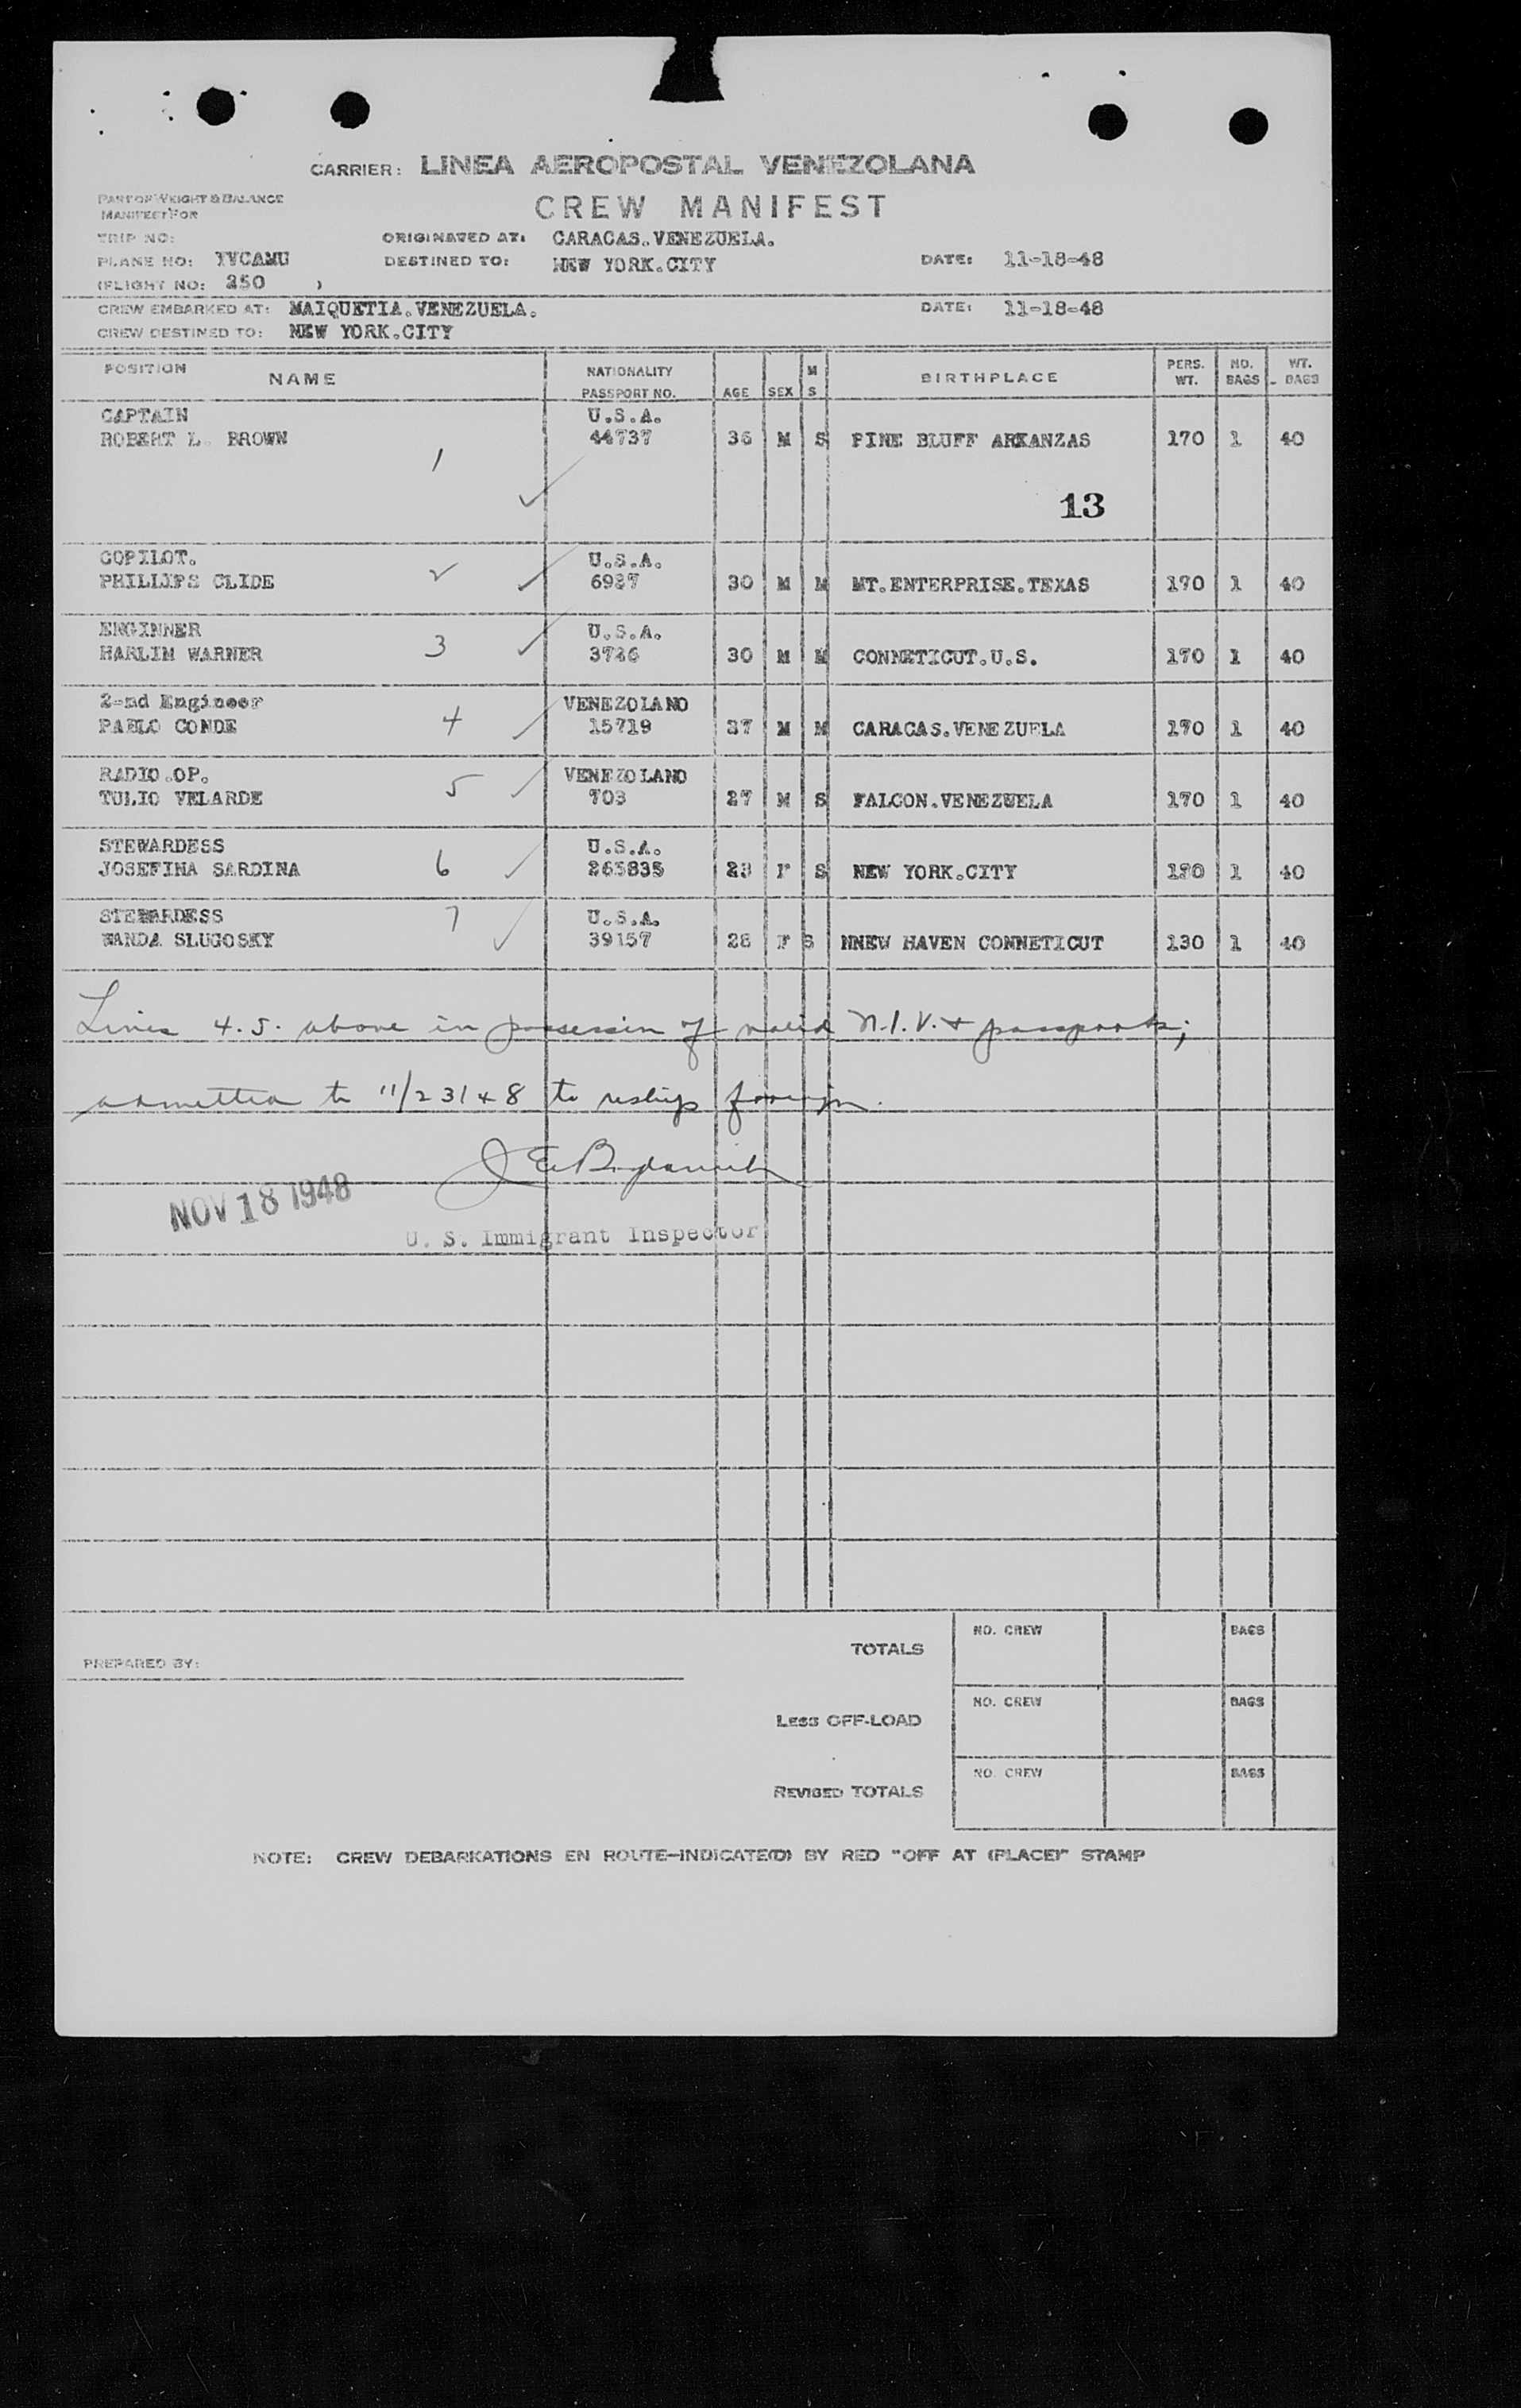 CARRIER: LINEA AEROPOSTAL VENEZOLANA
PART OF WEIGHT & BALANCE
MANIFEST FOR
CREW MANIFEST
TRIP NO: ORIGINATED AT: CARACAS.VENEZUELA.
PLANE NO: YVCAMU DESTINED TO: NEW YORK.CITY DATE: 11-18-48
(FLIGHT NO: 250 )
CREW EMBARKED AT: MAIQUETIA.VENEZUELA. DATE: 11-18-48
CREW DESTINED TO: NEW YORK.CITY
POSITION NAME NATIONALITY PASSPORT NO. AGE SEX M S BIRTHPLACE PERS. WT. NO. BAGS WT. BAGS
CAPTAIN U.S.A.
ROBERT L. BROWN 44737 36 M S PINE BLUFF ARKANZAS 170 1 40
1
13
COPILOT. U.S.A.
PHILLIPS CLIDE 2 6927 30 M M MT.ENTERPRISE.TEXAS 170 1 40
ENGINNER U.S.A.
HARLIM WARNER 3 3726 30 M M CONNETICUT.U.S. 170 1 40
2-nd Engineer VENEZOLANO
PABLO CONDE 4 15719 37 M M CARACAS.VENEZUELA 170 1 40
RADIO.OP. VENEZOLANO
TULIO VELARDE 5 703 27 M S FALCON.VENEZUELA 170 1 40
STEWARDESS U.S.A.
JOSEFINA SARDINA 6 265835 23 F S NEW YORK.CITY 1 40
STEWARDESS U.S.A.
WANDA SLUGOSKY 7 39157 28 F S NNEW HAVEN CONNETICUT 130 1 40
Lines 4.5. above in possession of valid N.I.V. + passports;
admitted to 11/23/48 to reship foreign.
NOV 18 1948
U. S. Immigrant Inspector
TOTALS NO. CREW BAGS
PREPARED BY:
LESS OFF-LOAD NO. CREW BAGS
REVISED TOTALS NO. CREW BAGS
NOTE: CREW DEBARKATIONS EN ROUTE-INDICATE(D) BY RED "OFF AT (PLACE)" STAMP